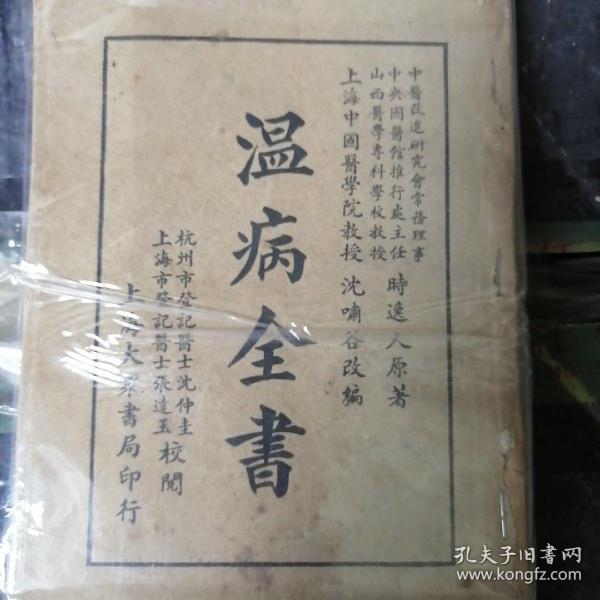 中醫改進研究會常務理事
中央國醫館推行處主任
山西醫學專科學校教授
時逸人原著
上海中國醫學院教授 沈嘯谷改編
温病全書
杭州市登記醫士沈仲圭
上海市登記醫士張達玉
校閱
上海大眾書局印行
孔夫子旧書网
www.kongfz.com